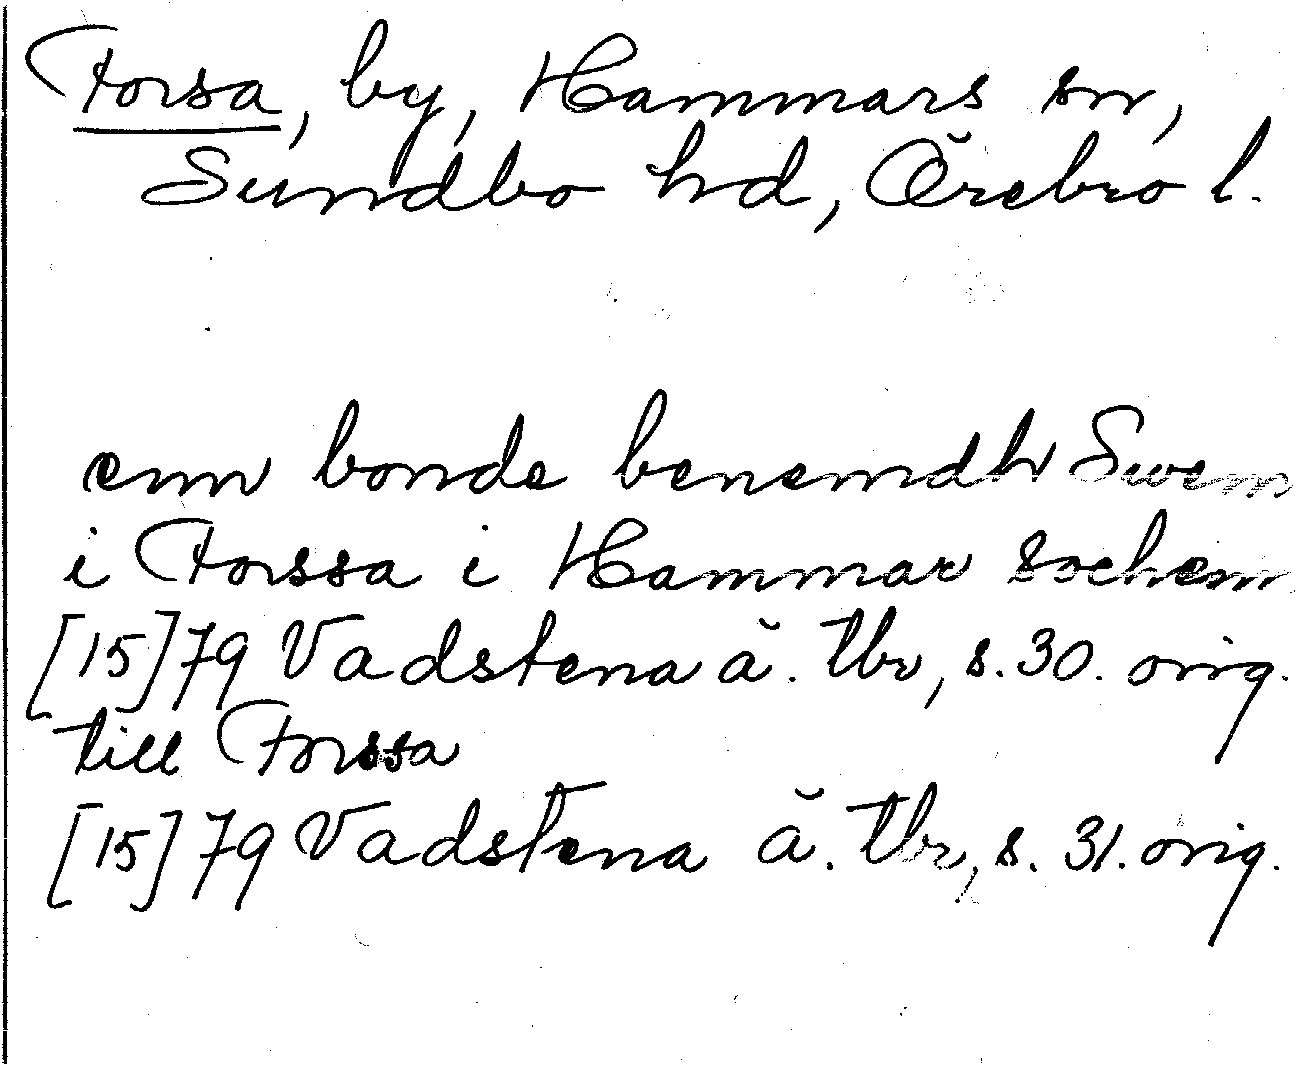 Forsa, by, Hammars sn,
Sundbo hd, Örebro l.
enn bonde benemdh Swen
i Forssa i Hammar sochenn
[15]79 Vadstena ä. tbr, s. 30. orig.
till Forssa
[15]79 Vadstena ä. tbr, s. 31. orig.